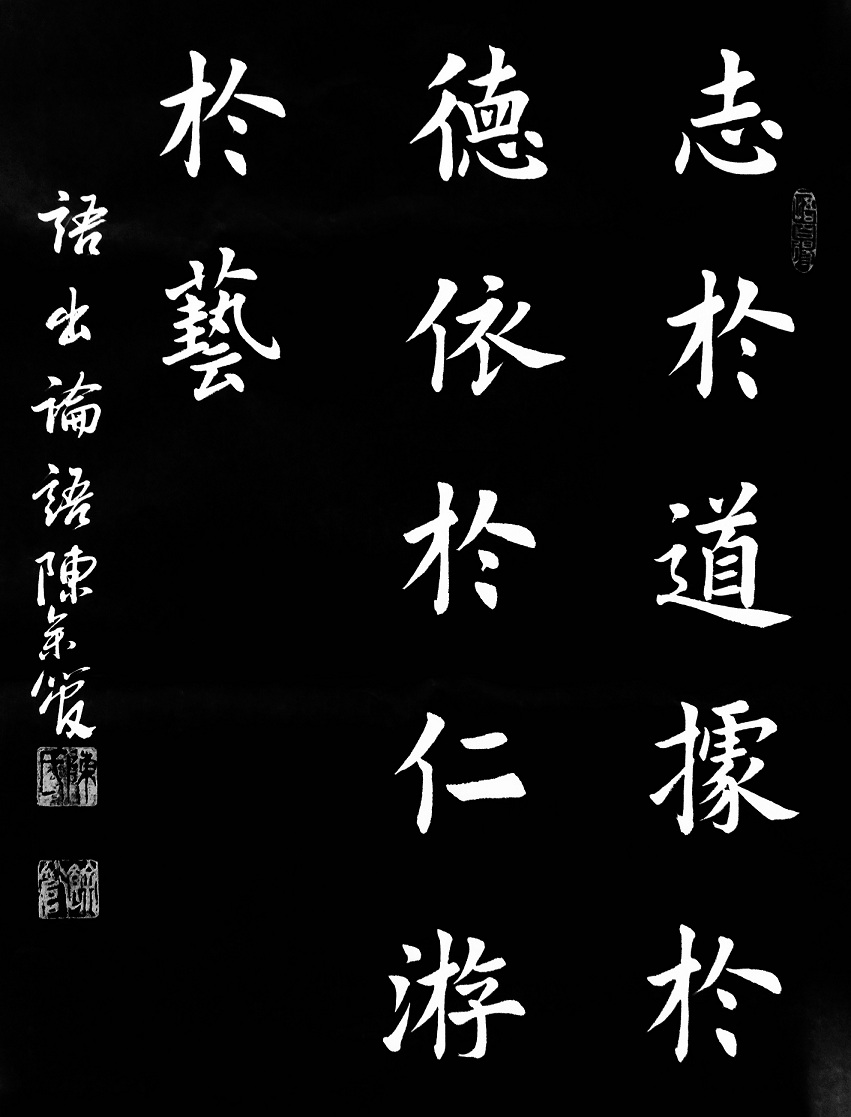 志於道據於
德依於仁游
於藝
語出論語陳